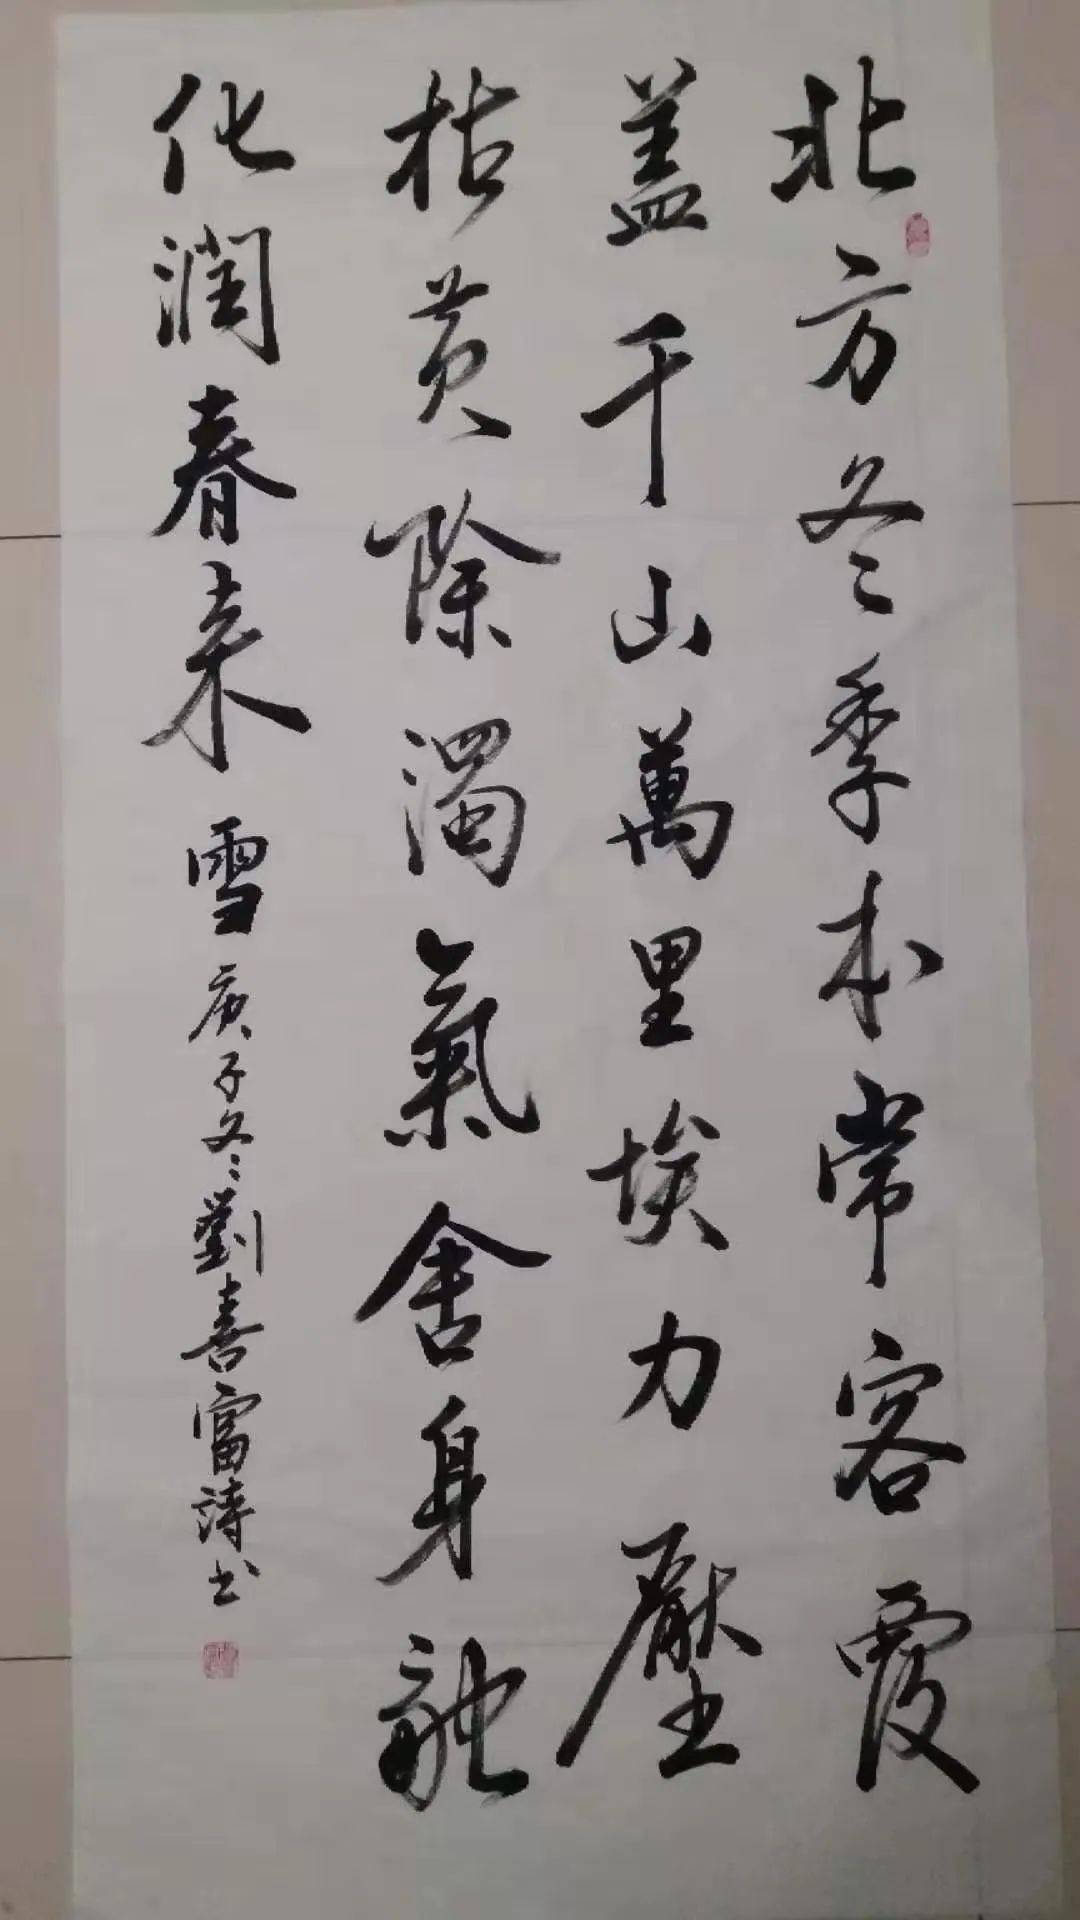 北方冬季本常客覆
盖千山萬里埃力壓
枯黄除濁氣舍身融
化潤春来 雪 庚子冬劉喜富詩书